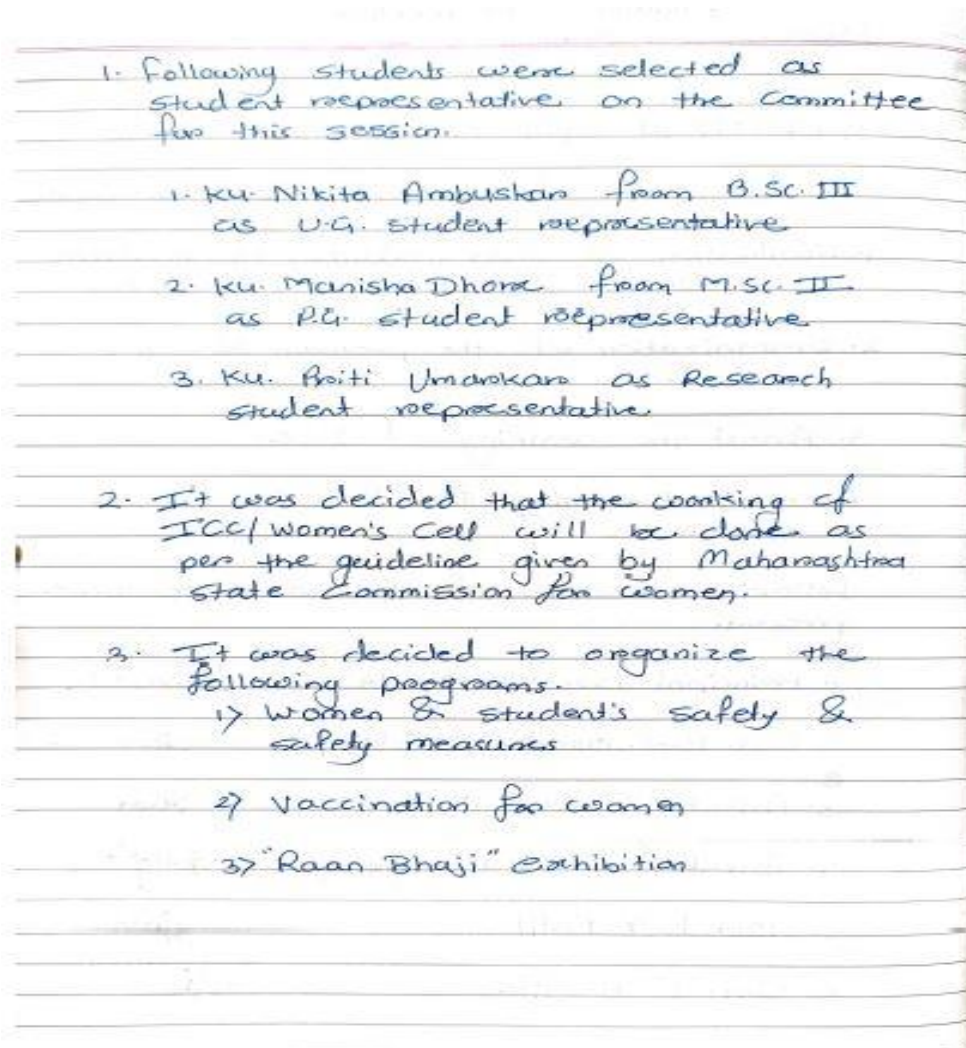 1. Following students were selected as
student representative on the Committee
for this session.
1. Ku. Nikita Ambuskar from B.Sc. III
as U.G. student representative
2. Ku. Manisha Dhore from M.Sc. II
as P.G. student representative
3. Ku. Priti Umarkar as Research
student representative
2. It was decided that the working of
ICC/Women's Cell will be done as
per the guideline given by Maharashtra
State Commission for women.
3. It was decided to organize the
following programs.
1) Women & student's safety &
safety measures
2) Vaccination for women
3) "Raan Bhaji" exhibition